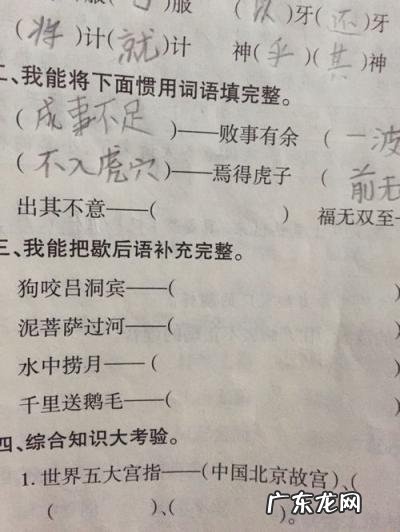 服( )服 (以)牙(还)牙
(将)计(就)计 神(乎)(其)神
二、我能将下面惯用词语填完整。
(成事不足)——败事有余 (一波
(不入虎穴)——焉得虎子 (前无
出其不意——( ) 福无双至—
三、我能把歇后语补充完整。
狗咬吕洞宾——( )
泥菩萨过河——( )
水中捞月——( )
千里送鹅毛——( )
四、综合知识大考验。
1. 世界五大宫指——(中国北京故宫)、(
( )、( )。
广东龙网